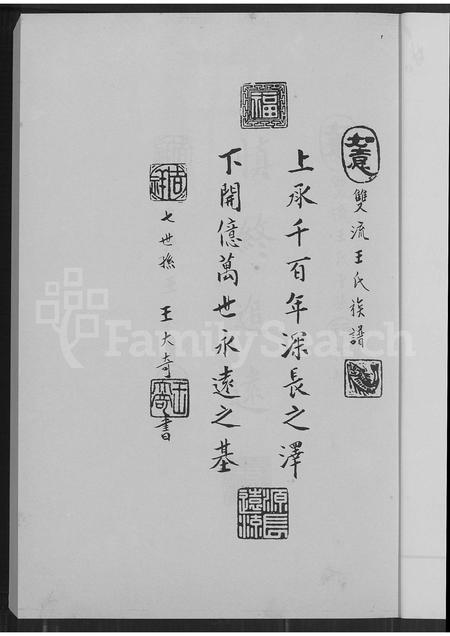 如意
雙流王氏族譜
福
上承千百年深長之澤
下開億萬世永遠之基
源長
遠流
吉祥
七世孫 王大奇書
FamilySearch